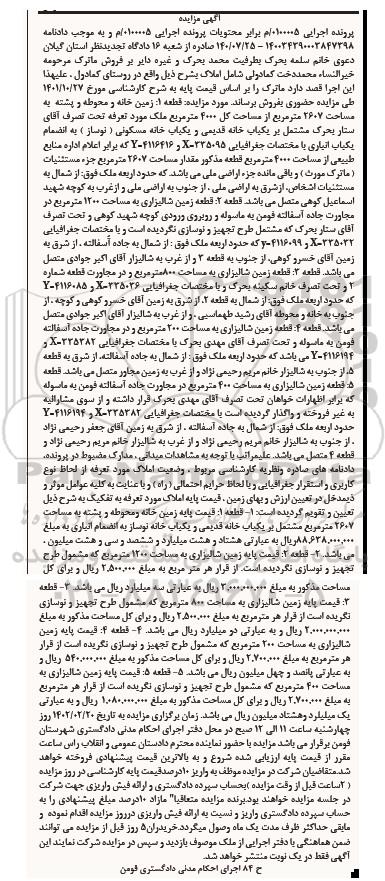 آگهی مزایده
پرونده اجرایی ۰۱۰۰۰۰۵/م برابر محتویات پرونده اجرایی ۰۱۰۰۰۰۵/م و به موجب دادنامه
۱۴۰۰۳۴۳۹۰۰۰۳۸۴۷۳۹۸ – ۱۴۰۰/۰۷/۲۵ صادره از شعبه ۱۶ دادگاه تجدیدنظر استان گیلان
دعوی خانم سلمه بحرک بطرفیت محمد بحرک و غیره دایر بر فروش ماترک مرحومه
خیرالنساء محمددخت کمادولی شامل املاک بشرح ذیل واقع در روستای کمادول . علیهذا
این اجرا قصد دارد ماترک را بر اساس قیمت پایه به شرح کارشناسی مورخ ۱۴۰۱/۱۰/۲۷
طی مزایده حضوری بفروش برساند. مورد مزایده: قطعه ۱: زمین خانه و محوطه و پشته به
مساحت ۲۶۰۷ مترمربع از مساحت کل ۴۰۰۰ مترمربع ملک مورد تعرفه تحت تصرف آقای
ستار بحرک مشتمل بر یکباب خانه قدیمی و یکباب خانه مسکونی ( نوساز ) به انضمام
یکباب انباری با مختصات جغرافیایی X-۳۳۵۰۹۵ و Y-۴۱۱۶۴۱۶ که برابر اعلام اداره منابع
طبیعی از مساحت ۴۰۰۰ مترمربع قطعه مذکور مقدار مساحت ۲۶۰۷ مترمربع جزء مستثنیات
( ماترک مورث ) و باقی مانده جزء اراضی ملی می باشد. که حدود اربعه ملک فوق: از شمال به
مستثنیات اشخاص، ازشرق به اراضی ملی ، از جنوب به اراضی ملی و ازغرب به کوچه شهید
اسماعیل کوهی متصل می باشد. قطعه ۲: قطعه زمین شالیزاری به مساحت ۱۲۰۰ مترمربع در
مجاورت جاده آسفالته فومن به ماسوله و روبروی ورودی کوچه شهید کوهی و تحت تصرف
آقای ستار بحرک که مشتمل طرح تجهیز و نوسازی نگردیده است و با مختصات جغرافیایی
X-۳۳۵۰۳۲ و y-۴۱۱۶۰۹۹ که حدود اربعه ملک فوق : از شمال به جاده آسفالته ، از شرق به
زمین آقای خسرو کوهی، از جنوب به قطعه ۳ و از غرب به شالیزار آقای اکبر جوادی متصل
می باشد. قطعه ۳: قطعه زمین شالیزاری به مساحت ۸۰۰مترمربع و در مجاورت قطعه شماره
۲ و تحت تصرف خانم سکینه بحرک و با مختصات جغرافیایی X-۳۳۵۰۲۶ و Y-۴۱۱۶۰۸۵
که حدود اربعه ملک فوق: از شمال به قطعه ۲، از شرق به زمین آقای خسرو کوهی و کوچه ، از
جنوب به خانه و محوطه آقای رشید طهماسبی ، و از غرب به شالیزار آقای اکبر جوادی متصل
می باشد. قطعه ۴: قطعه زمین شالیزاری به مساحت ۲۰۰ مترمربع و در مجاورت جاده آسفالته
فومن به ماسوله و تحت تصرف آقای مهدی بحرک با مختصات جغرافیایی X-۳۳۵۳۸۲ و
Y-۴۱۱۶۱۹۴ می باشد که حدود اربعه ملک فوق : از شمال به جاده آسفالته، از شرق به قطعه
۵، از جنوب به شالیزار خانم مریم رحیمی نژاد و از غرب به زمین مجاور متصل می باشد. قطعه
۵: قطعه زمین شالیزاری به مساحت ۴۰۰ مترمربع در مجاورت جاده آسفالته فومن به ماسوله
که برابر اظهارات خواهان تحت تصرف آقای مهدی بحرک قرار داشته و از سوی مشارالیه
به غیر فروخته و واگذار گردیده است با مختصات جغرافیایی X-۳۳۵۳۸۲ و Y-۴۱۱۶۱۹۴
حدود اربعه ملک فوق: از شمال به جاده آسفالته ، از شرق به زمین آقای جعفر رحیمی نژاد
، از جنوب به شالیزار خانم مریم رحیمی نژاد و از غرب به شالیزار خانم مریم رحیمی نژاد و
قطعه ۴ متصل می باشد. علیمراتب با توجه به مشاهدات میدانی ، مدارک مضبوط در پرونده،
دادنامه های صادره ونظریه کارشناسی مربوط ، وضعیت املاک مورد تعرفه از لحاظ نوع
کاربری و استقرار جغرافیایی و با لحاظ حرایم احتمالی (راه) و با عنایت به کلیه عوامل موثر و
ذیمدخل در تعیین ارزش و بهای زمین ، قیمت پایه املاک مورد تعرفه به تفکیک به شرح ذیل
تعیین و تقویم گردیده است: ۱- قطعه ۱: قیمت پایه زمین خانه ومحوطه و پشته به مساحت
۲۶۰۷ مترمربع مشتمل بر یکباب خانه قدیمی و یکباب خانه نوساز به انضمام انباری به مبلغ
۸۸.۶۳۸.۰۰۰.۰۰۰ریال به عبارتی هشتاد و هشت میلیارد و ششصد و سی و هشت میلیون ،
می باشد. ۲- قطعه ۲: قیمت پایه زمین شالیزاری به مساحت ۱۲۰۰ مترمربع که مشمول طرح
تجهیز و نوسازی نگردیده است، از قرار هر متر مربع به مبلغ ۲.۵۰۰.۰۰۰ ریال و برای کل
مساحت مذکور به مبلغ ۳.۰۰۰.۰۰۰.۰۰۰ ریال به عبارتی سه میلیارد ریال می باشد. ۳- قطعه
۳: قیمت پایه زمین شالیزاری به مساحت ۸۰۰ مترمربع که مشمول طرح تجهیز و نوسازی
نگردیده است از قرار هر مترمربع به مبلغ ۲.۵۰۰.۰۰۰ ریال و برای کل مساحت مذکور به مبلغ
۲.۰۰۰.۰۰۰.۰۰۰ ریال و به عبارتی دو میلیارد ریال می باشد. ۴- قطعه ۴: قیمت پایه زمین
شالیزاری به مساحت ۲۰۰ مترمربع که مشمول طرح تجهیز و نوسازی نگردیده است از قرار
هر مترمربع به مبلغ ۲.۷۰۰.۰۰۰ ریال و برای کل مساحت مذکور به مبلغ ۵۴۰.۰۰۰.۰۰۰ ریال و
به عبارتی پانصد و چهل میلیون ریال می باشد. ۵- قطعه ۵: قیمت پایه زمین شالیزاری به
مساحت ۴۰۰ مترمربع که مشمول طرح تجهیز و نوسازی نگردیده است از قرار هر مترمربع
به مبلغ ۲.۷۰۰.۰۰۰ ریال و برای کل مساحت مذکور به مبلغ ۱.۰۸۰.۰۰۰.۰۰۰ ریال و به عبارتی
یک میلیارد وهشتاد میلیون ریال می باشد. زمان برگزاری مزایده به تاریخ ۱۴۰۲/۰۲/۲۰ روز
چهارشنبه ساعت ۱۱ الی ۱۲ صبح در محل دفتر اجرای احکام مدنی دادگستری شهرستان
فومن برقرار می باشد مزایده با حضور نماینده محترم دادستان عمومی و انقلاب راس ساعت
مقرر از قیمت پایه ارزیابی شده شروع و به بالاترین قیمت پیشنهادی فروخته خواهد
شد.متقاضیان شرکت در مزایده موظف به واریز ۱۰درصدقیمت پایه کارشناسی در روز مزایده
( ۲ساعت قبل از وقت مزایده )بحساب سپرده دادگستری و ارائه فیش واریزی جهت شرکت
در جلسه مزایده خواهند بود.برنده مزایده متعاقبا" مازاد ۱۰درصد مبلغ پیشنهادی را به
حساب سپرده دادگستری واریز و نسبت به ارائه فیش واریزی درروز مزایده اقدام نموده و
مابقی حداکثر ظرف مدت یک ماه وصول میگردد.خریداران۵ روز قبل از مزایده می توانند
ضمن هماهنگی با دفتر اجرایی از ملک موصوف بازدید و سپس در مزایده شرکت نمایند این
آگهی فقط در یک نوبت منتشر خواهد شد.
ح ۸۴ اجرای احکام مدنی دادگستری فومن